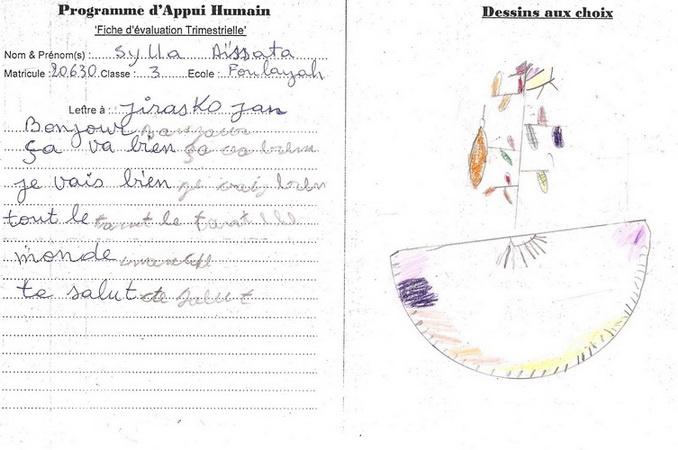 Programme d'Appui Humain
'Fiche d'évaluation Trimestrielle'
Nom & Prénom(s) : Sylla Aïssata
Matricule : 20630 Classe : 3 Ecole : Foulayah
Lettre à : Jirasko Jan
Bonjour
ça va bien ça
je vais bien je
tout le
monde
te salut te salut
Dessins aux choix